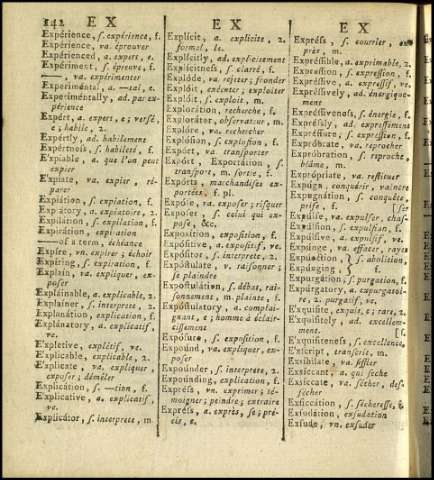 142 EX EX EX
Expérience, ſ. expérience, f.
Expérience, va. éprouver
Experienced, a. expert, e.
Expériment, ſ. épreuve, f.
——, va. expérimenter
Experimental, a. —tal, e.
Experimentally, ad. par expérience
Expért, a. expert, e; verſé,
e; habile, 2.
Expértly, ad. habilement
Expértneſs, ſ. habileté, f.
Expiable, a. que l'on peut
expier
Expiate, va. expier, réparer
Expiátion, ſ. expiation, f.
Expiatory, a. expiatoire, 2.
Expilátion, ſ. expilation, f.
Expirátion, expiration
——of a term, échéance
Expíre, vn. expirer; échoir
Expíring, ſ. expiration, f.
Expláin, va. expliquer, expoſer
Expláinable, a. explicable, 2.
Expláiner, ſ. interprete, 2.
Explanátion, explication, f.
Explánatory, a. explicatif,
ve.
E'xpletive, explétif, ve.
E'xplicable, explicable, 2.
E'xplicate, va. expliquer,
expoſer; démêler
Explicátion, ſ. —tion, f.
Explicative, a. explicatif,
ve.
Explicátor, ſ. interprete, m.
Explícit, a. explicite, 2.
formel, le.
Explícitly, ad. explicitement
Explícitneſs, ſ. clarté, f.
Explóde, va. rejeter; fronder
Explóit, exécuter; exploiter
Explóit, ſ. exploit, m.
Explorátion, recherche, f.
Explorátor, obſervateur, m.
Explóre, va. rechercher
Explóſion, ſ. exploſion, f.
Expórt, va. tranſporter
Expórt, Exportátion, ſ.
tranſport, m. ſortie, f.
Expórts, marchandiſes exportées, f. pl.
Expóſe, va. expoſer; riſquer
Expóſer, ſ. celui qui expoſe, &c.
Expoſítion, expoſition, f.
Expóſitive, a. expoſitif, ve.
Expóſitor, ſ. interprete, 2.
Expóſtulate, v. raiſonner;
ſe plaindre
Expoſtulátion, ſ. débat, raiſonnement, m. plainte, f.
Expóſtulatory, a. complaignant, e; homme à éclairciſſement
Expóſure, ſ. expoſition, f.
Expóund, va. expliquer, expoſer
Expóunder, ſ. interprete, 2.
Expóunding, explication, f.
Expréſs, vn. exprimer; témoigner; peindre; extraire
Expréſs, a. exprès, ſe; précis, e.
Expréſs, ſ. courrier, exprès, m.
Expréſſible, a. exprimable, 2.
Expréſſion, ſ. expreſſion, f.
Expréſſive, a. expreſſif, ve.
Expréſſively, ad. énergiquement
Expréſſiveneſs, ſ. énergie, f.
Expréſsly, ad. expreſſément
Expréſſure, ſ. expreſſion, f.
E'xprobrate, va. reprocher
Exprobrátion, ſ. reproche,
blâme, m.
Exprópriate, va. reſtituer
Expúgn, conquérir, vaincre
Expugnátion, ſ. conquête,
priſe, f.
Expúlſe, va. expulſer, chaſſer
Expúlſion, ſ. expulſion, f.
Expúlſive, a. expulſif, ve.
Expúnge, va. effacer, rayer
Expúnction, } ſ. abolition,
Expúnging, } f.
Expurgátion, ſ. purgation, f.
Expúrgatory, a. expurgatoire, 2. purgatif, ve.
E'xquiſite, exquis, e; rare, 2.
E'xquiſitely, ad. excellemment
E'xquiſiteneſs, ſ. excellence, f.
E'xſcript, tranſcrit, m.
Exsibilate, va. ſiffler
Exsíccant, a. qui ſeche
Exsíccate, va. ſécher, deſſécher
Exsiccátion, ſ. ſéchereſſe, f.
Exſudátion, exſudation
Exſúde, vn. exſuder